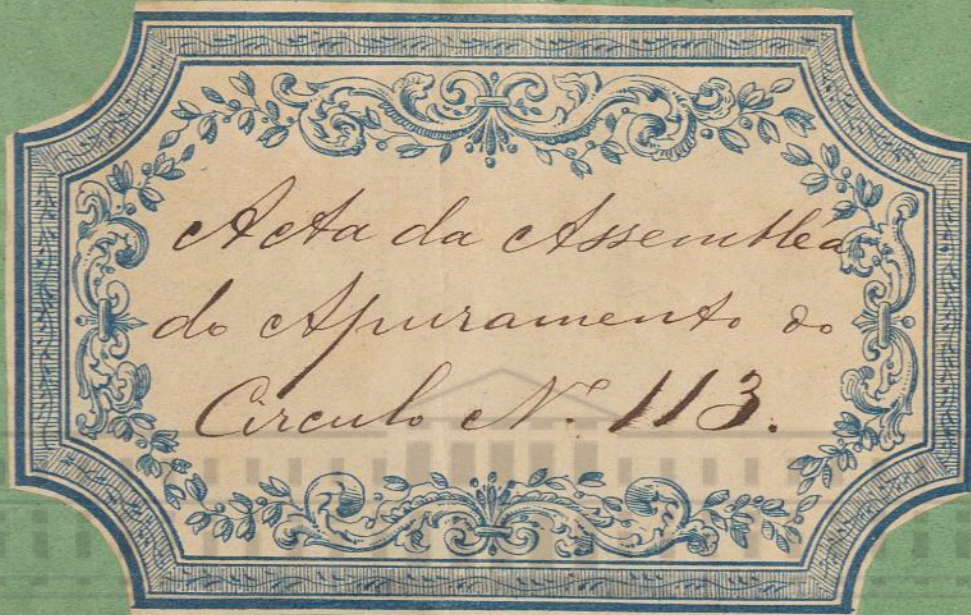 Acta da Assembléa
do Apuramento do
Circulo Nº 113.